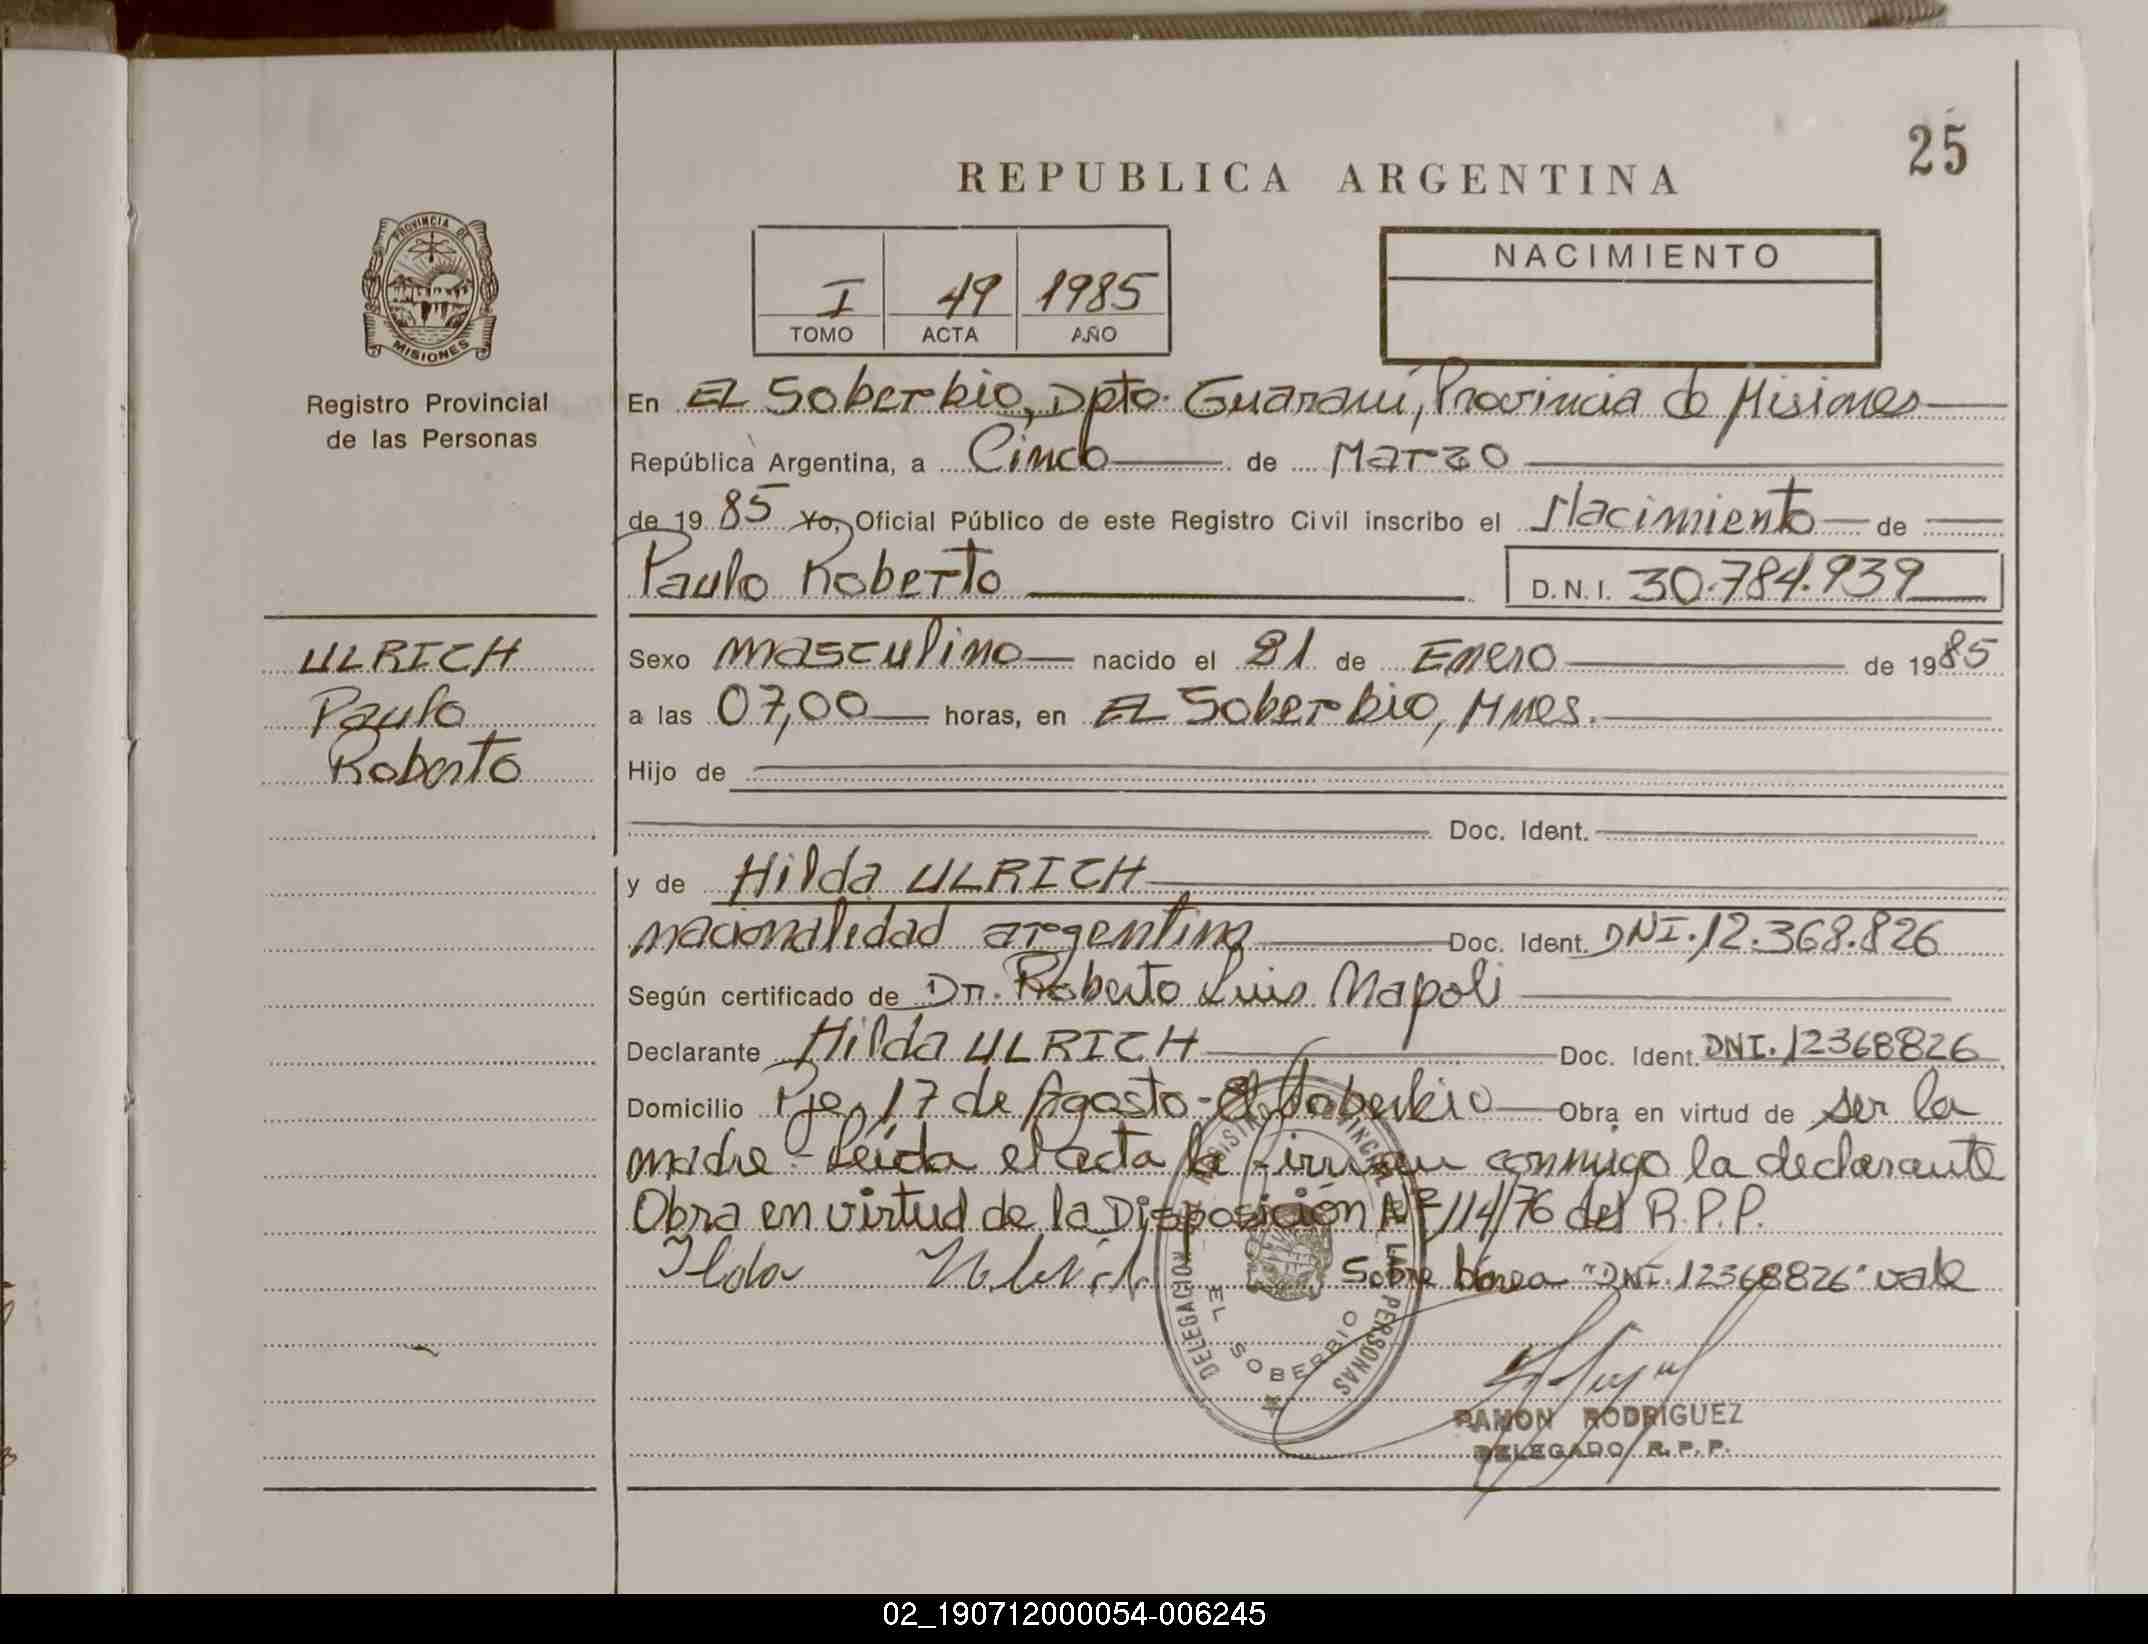 25
REPUBLICA ARGENTINA
PROVINCIA DE
MISIONES
Registro Provincial
de las Personas
I 49 1985
TOMO ACTA AÑO
NACIMIENTO
En EL Soberbio, Dpto. Guaraní, Provincia de Misiones
República Argentina, a Cinco de Marzo
de 19 85 Yo, Oficial Público de este Registro Civil inscribo el Nacimiento de
Paulo Roberto D.N.I. 30.784.939
ULRICH
Paulo
Roberto
Sexo masculino nacido el 21 de Enero de 1985
a las 07,00 horas, en EL Soberbio, Mnes.
Hijo de
Doc. Ident.
y de Hilda ULRICH
nacionalidad argentina Doc. Ident. DNI. 12.368.826
Según certificado de Dr. Roberto Luis Napoli
Declarante Hilda ULRICH Doc. Ident. DNI. 12368826
Domicilio Pje. 17 de Agosto - El Soberbio Obra en virtud de ser la
madre - Leída el acta la firman conmigo la declarante
Obra en virtud de la Disposición Nº 114/76 del R.P.P.
Ilda Ulrich Sobre línea "DNI. 12368826" vale
DELEGACION REGISTRO PROVINCIAL DE LAS PERSONAS
EL SOBERBIO
RAMON RODRIGUEZ
DELEGADO R.P.P.
02_190712000054-006245